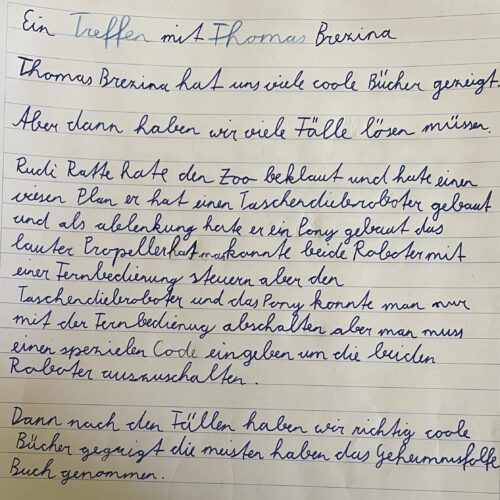 Ein Treffen mit Thomas Brezina
Thomas Brezina hat uns viele coole Bücher gezeigt.
Aber dann haben wir viele Fälle lösen müssen.
Rudi Ratte hate den Zoo beklaut und hate einen
viesen Plan er hat einen Taschendiebroboter gebaut
und als ablenkung hate er ein Pony gebaut das
lauter Propeller hat man konnte beide Roboter mit
einer Fernbedienung steuern aber den
Taschendiebroboter und das Pony konnte man nur
mit der Fernbedienug abschalten aber man muss
einen spezielen Code eingeben um die beiden
Roboter auszuschalten.
Dann nach den Fällen haben wir richtig coole
Bücher gegeigt die meisten haben das Geheimnisfolfe
Buch genommen.